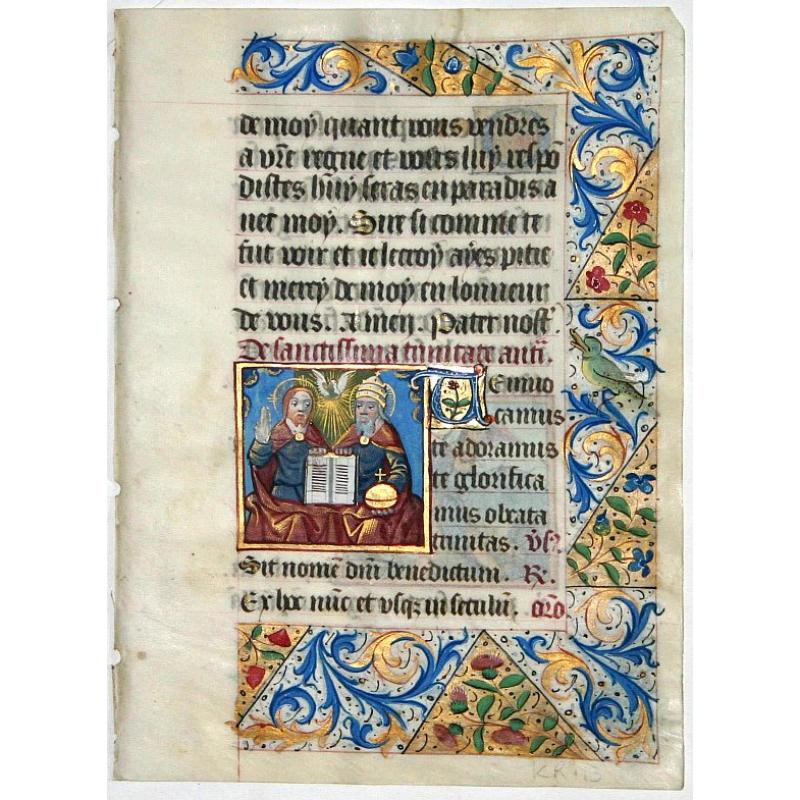 de moy quant vous vendres
a vr̃e regne et vous luy respõ
distes huy seras en paradis a
uec moy. Sire si comme ce
fut voir et ie le croy ayes pitie
et mercy de moy en lonneur
de vous. Amen. Pater nost̃.
De sanctissima trinitate anti.
Te inuo
camus
te adoramus
te glorifica
mus o beata
trinitas. vs̃.
Sit nomẽ dñi benedictum. R.
Ex hoc nũc et vsqꝫ in seculũ. orõ